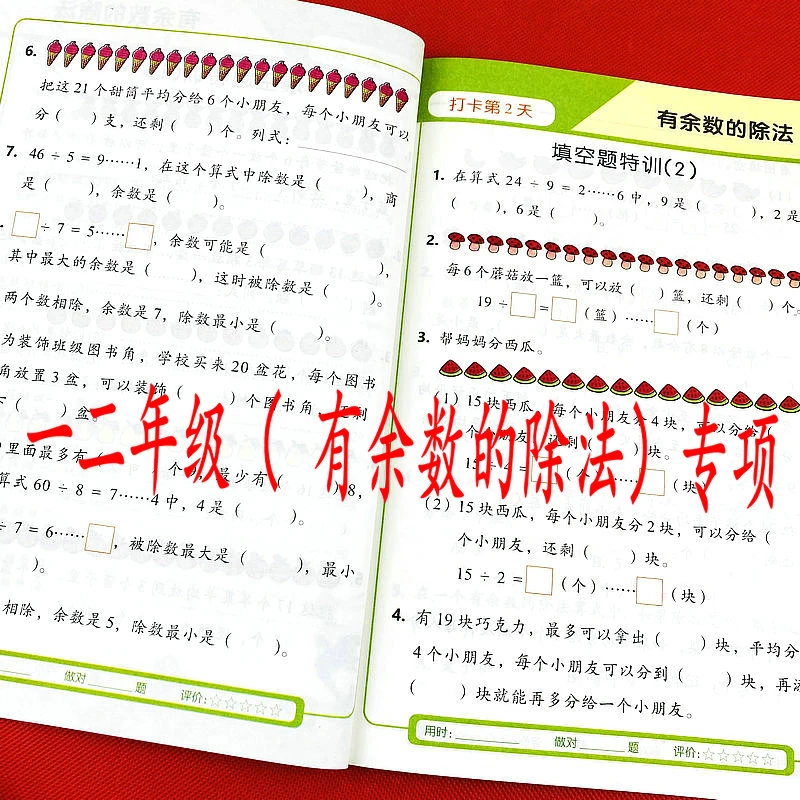 6.
把这21个甜筒平均分给6个小朋友，每个小朋友可以
分（ ）支，还剩（ ）个。列式：
7. 46÷5=9……1，在这个算式中除数是（ ），商
是（ ），余数是（ ）。
□÷7=5……□，余数可能是（ ），
其中最大的余数是（ ），这时被除数是（ ）。
两个数相除，余数是7，除数最小是（ ）。
为装饰班级图书角，学校买来20盆花，每个图书
角放置3盆，可以装饰（ ）个图书角，还剩
下（ ）盆。
里面最多有（ ）个9，最少有（ ）8，
算式60÷8=7……4中，4是（ ）。
÷7=6……□，被除数最大是（ ），最小
（ ）。
相除，余数是5，除数最小是（ ）。
做对 题 评价：☆☆☆☆☆
打卡第2天
有余数的除法
填空题特训（2）
1. 在算式24÷9=2……6中，9是（ ），2是
（ ），6是（ ）。
2.
每6个蘑菇放一篮，可以放（ ）篮，还剩（ ）个。
19÷□=□（篮）……□（个）
3. 帮妈妈分西瓜。
（1）15块西瓜，每个小朋友分4块，可以分给
个小朋友，还剩（ ）块。
15÷4=□（个）……□（块）
（2）15块西瓜，每个小朋友分2块，可以分给（
个小朋友，还剩（ ）块。
15÷2=□（个）……□（块）
4. 有19块巧克力，最多可以拿出（ ）块，平均分
4个小朋友，每个小朋友可以分到（ ）块，再添
（ ）块就能再多分给一个小朋友。
用时： 做对 题 评价：☆☆☆☆☆
一二年级（有余数的除法）专项